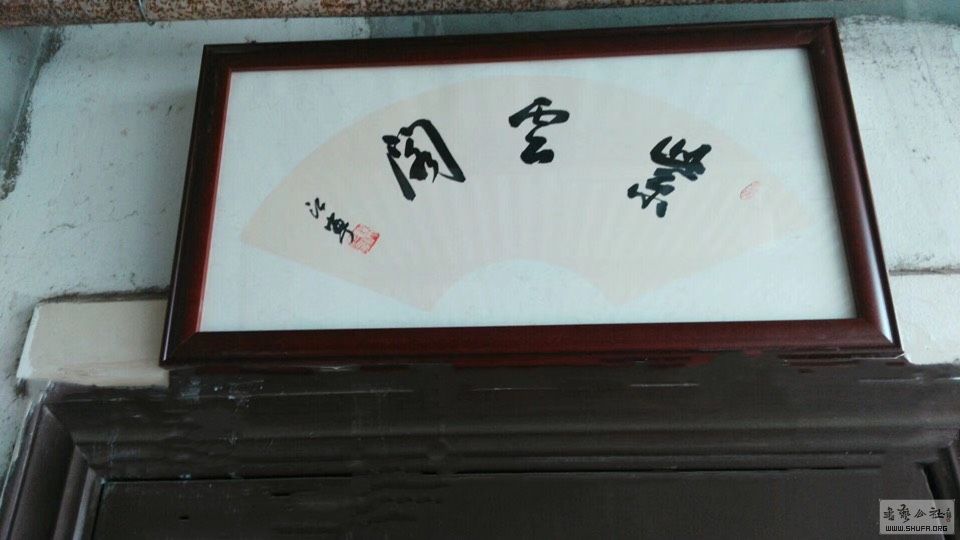 聚雲閣
書藝公社
WWW.SHUFA.ORG